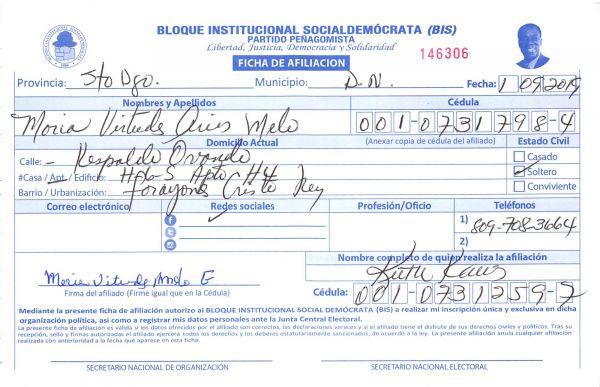 BLOQUE INSTITUCIONAL SOCIALDEMÓCRATA (BIS)
PARTIDO PEÑAGOMISTA
Libertad, Justicia, Democracia y Solidaridad
146306
FICHA DE AFILIACION
Provincia: Sto Dgo. Municipio: D.N. Fecha: 1 09 2019
Nombres y Apellidos Cédula
Maria Virtudes Melo 001-0731798-4
Domicilio Actual (Anexar copia de cédula del afiliado) Estado Civil
Calle: Respaldo Ovando Casado
#Casa / Apt / Edificio: Apto #4 Soltero
Barrio / Urbanización: Cristo Rey Conviviente
Correo electrónico Redes sociales Profesión/Oficio Teléfonos
1) 809-708-3664
2)
Nombre completo de quien realiza la afiliación
Ruth
Firma del afiliado (Firme igual que en la Cédula) Cédula: 001-0731259-7
Mediante la presente ficha de afiliación autorizo al BLOQUE INSTITUCIONAL SOCIAL DEMÓCRATA (BIS) a realizar mi inscripción única y exclusiva en dicha
organización política, así como a registrar mis datos personales ante la Junta Central Electoral.
La presente ficha de afiliación es válida si los datos ofrecidos por el afiliado son correctos, las declaraciones veraces y si el titular tiene el disfrute de sus derechos civiles y políticos. Tras su
recepción, sello y firmas autorizadas el afiliado ejercerá todos los derechos y los deberes estatutariamente sancionados, de acuerdo a la ley. La presente afiliación anula cualquier afiliación
realizada con anterioridad a la fecha que aparece en esta ficha.
SECRETARIO NACIONAL DE ORGANIZACIÓN SECRETARIO NACIONAL ELECTORAL